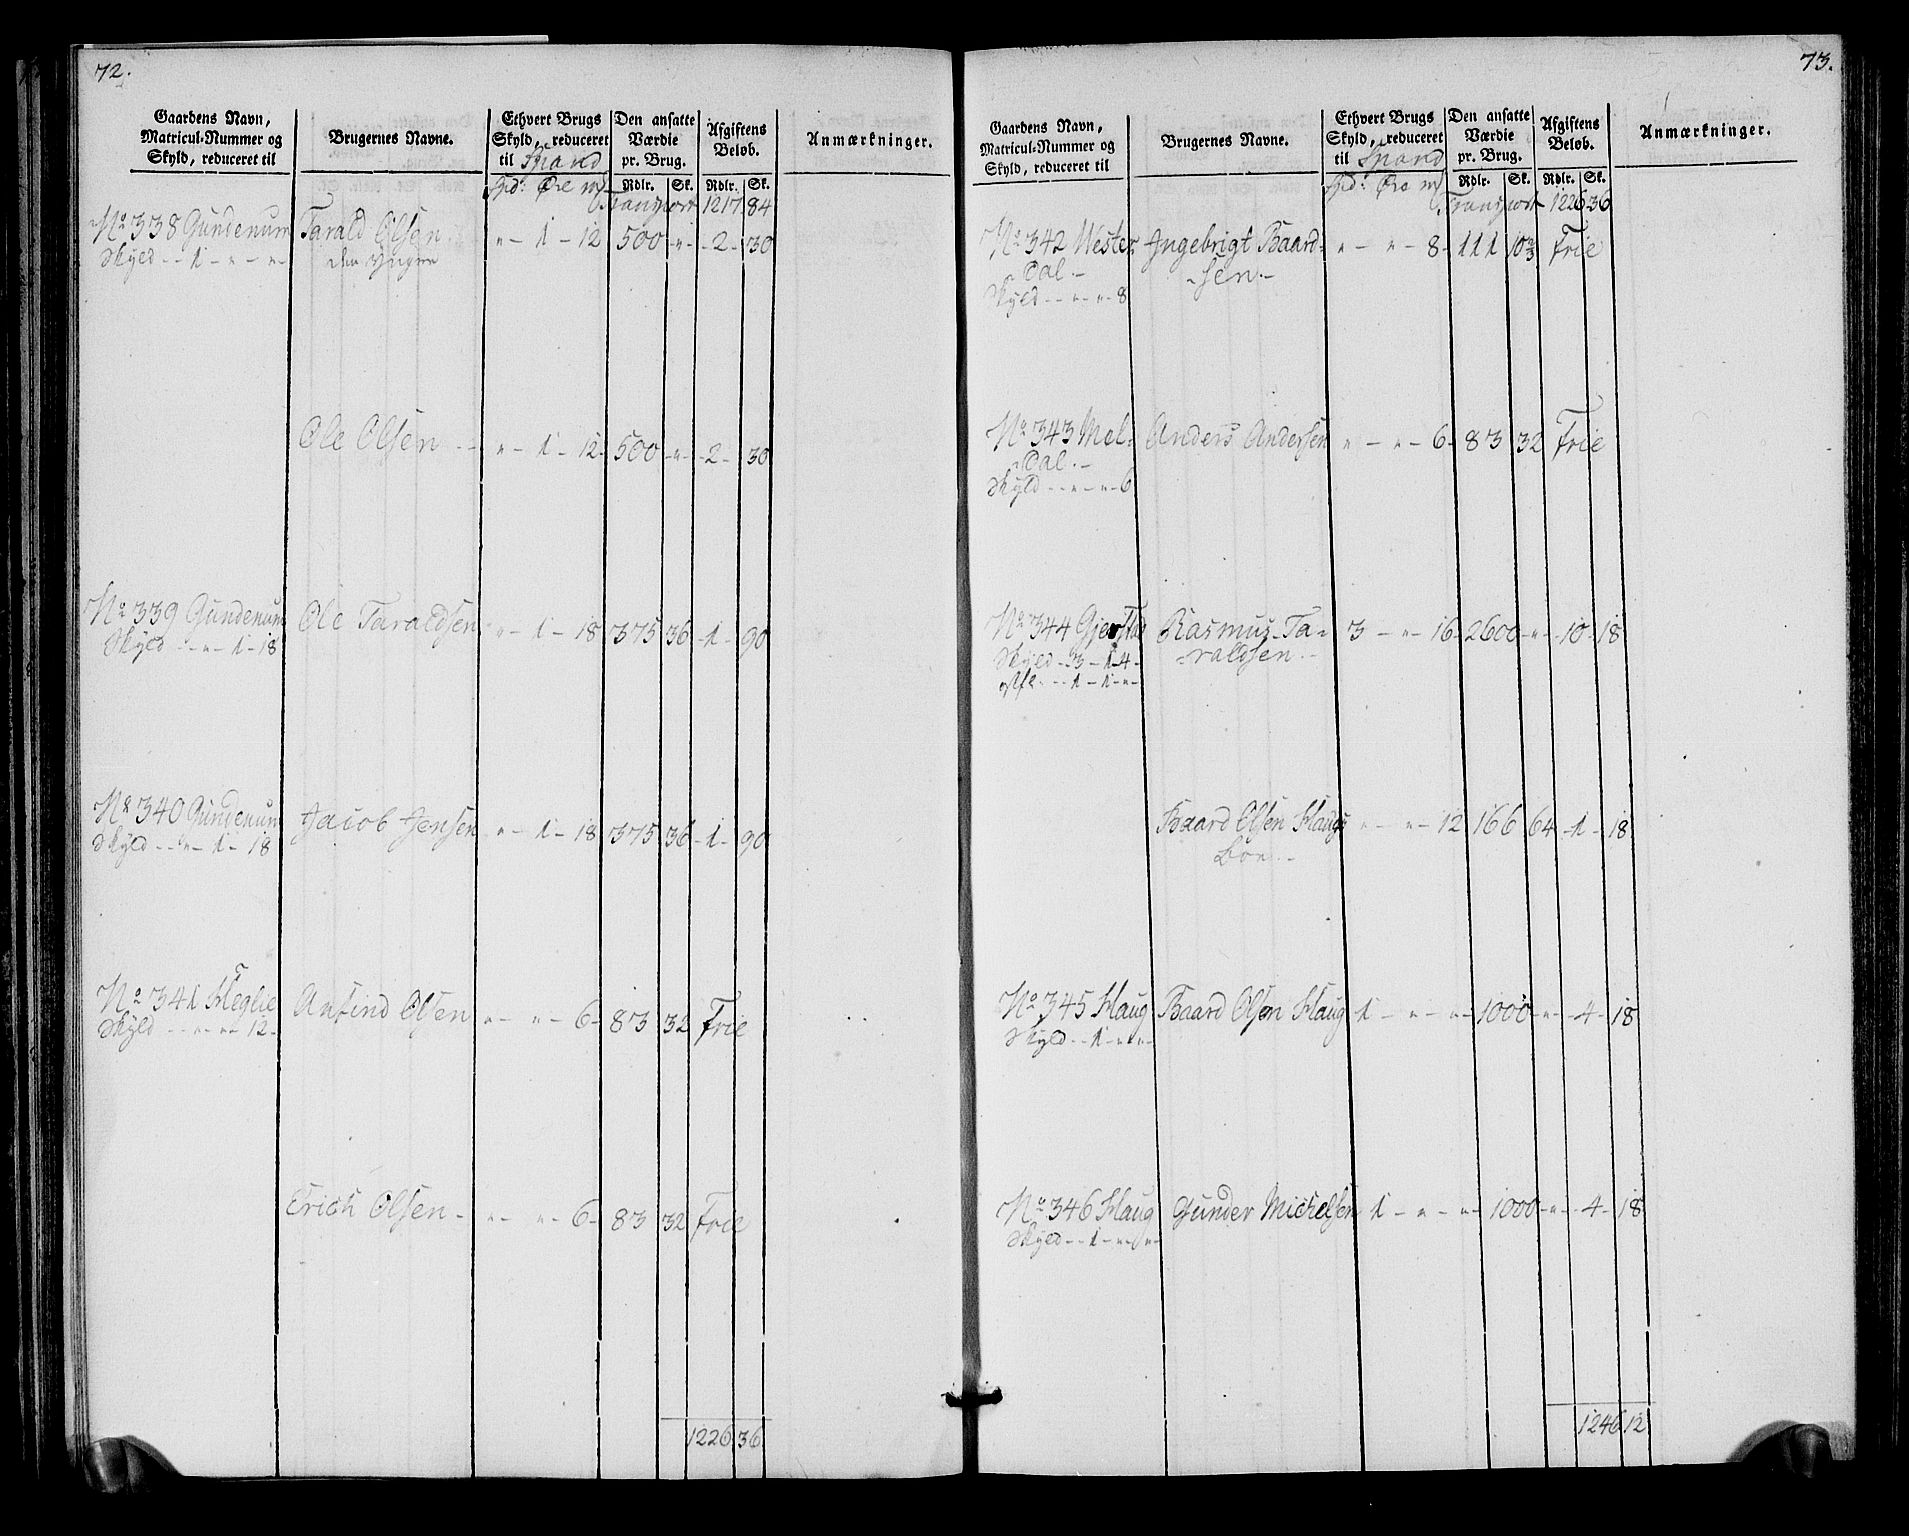 72.
Gaardens Navn,
Matricul-Nummer og
Skyld, reduceret til
Brugernes Navne.
Ethvert Brugs
Skyld, reduceret
til Spand
Spd: Øre ml
Den ansatte
Værdie
pr. Brug.
Rdlr. Sk.
Afgiftens
Beløb.
Rdlr. Sk.
Anmærkninger.
Transport 1217 84
No 338 Gundenum Tarald Olsen " - 1 - 12 500 - " - 2 - 30
Skyld - - 1 - " - " - den yngre
Ole Olsen - - " - 1 - 12 - 500 - " - 2 - 30
No 339 Gundenum Ole Taraldsen " - 1 - 18 375 36 - 1 - 90
Skyld - - " - 1 - 18
No 340 Gundenum Jacob Jensen " - 1 - 18 375 36 - 1 - 90
Skyld - - " - 1 - 18
No 341 Heglie Anfind Olsen " - " - 6 - 83 32 Frie
Skyld - - " - " - 12 -
Erich Olsen - " - " - 6 - 83 32 Frie
1226 36
73.
Gaardens Navn,
Matricul-Nummer og
Skyld, reduceret til
Brugernes Navne.
Ethvert Brugs
Skyld, reduceret
til Spand
Spd: Øre ml
Den ansatte
Værdie
pr. Brug.
Rdlr. Sk.
Afgiftens
Beløb.
Rdlr. Sk.
Anmærkninger.
Transport 1226 36
No 342 Wester- Ingebrigt Baard- " - " - 8 - 111 10 2/3 Frie
Dal. - -sen. -
Skyld - - " - " - 8
No 343 Mel- Anders Andersen " - " - 6 - 83 32 Frie
Dal. -
Skyld - - " - " - 6
No 344 Gjerstad Rasmus Ta- 3 - " - 16 - 2600 - " - 10 - 18
Skyld - 3 - 1 - 4 - -raldsen. -
- - 1 - 1 - " -
Baard Olsen Haugs " - " - 12 166 64 - 1 - 18
boe. -
No 345 Haug Baard Olsen Haug 1 - " - " - 1000 - " - 4 - 18
Skyld - - 1 - " - " -
No 346 Haug Gunder Michelsen 1 - " - " - 1000 - " - 4 - 18
Skyld - - 1 - " - " -
1246 12